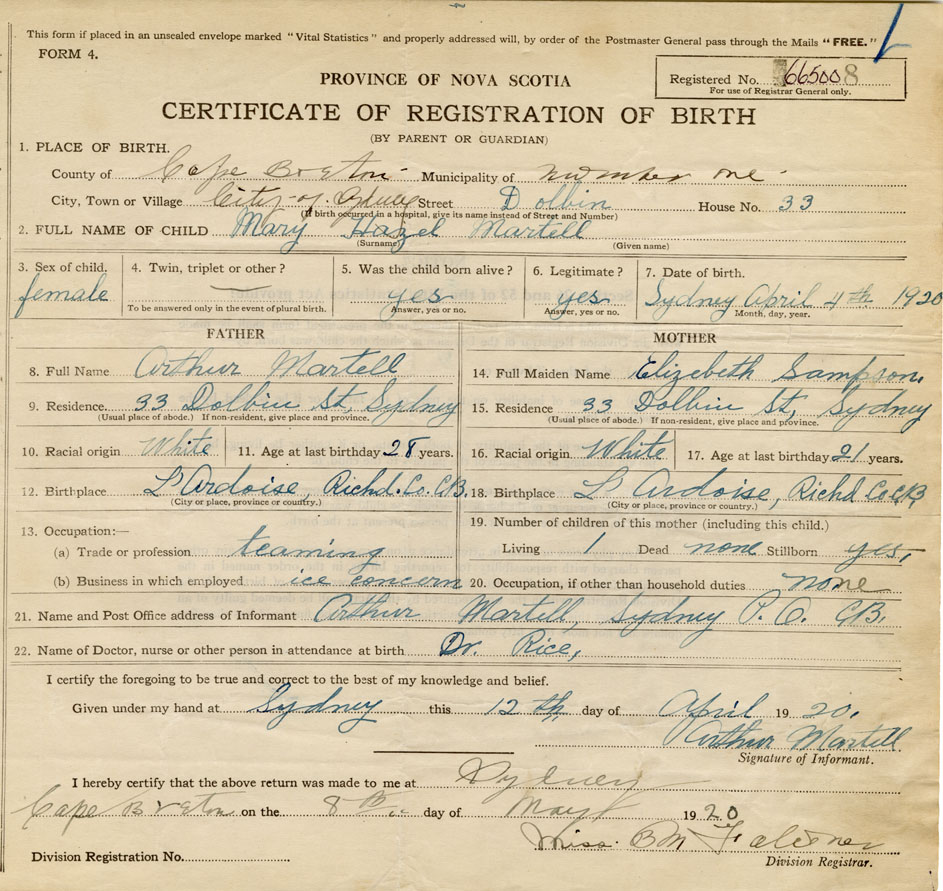 This form if placed in an unscaled envelope marked "Vital Statistics" and properly addressed will, by order of the Postmaster General pass through the Mails "FREE."
FORM 4.
PROVINCE OF NOVA SCOTIA
Registered No. 665008
For use of Registrar General only.
CERTIFICATE OF REGISTRATION OF BIRTH
(BY PARENT OR GUARDIAN)
1. PLACE OF BIRTH.
County of Cape Breton Municipality of number one
City, Town or Village City of Sydney Street Dolbin House No. 33
(If birth occurred in a hospital, give its name instead of Street and Number)
2. FULL NAME OF CHILD Mary Hazel Martell
(Surname) (Given name)
3. Sex of child. 4. Twin, triplet or other? 5. Was the child born alive? 6. Legitimate? 7. Date of birth.
female — yes yes Sydney April 4th 1920
To be answered only in the event of plural birth. Answer, yes or no. Answer, yes or no. Month, day, year.
FATHER MOTHER
8. Full Name Arthur Martell 14. Full Maiden Name Elizebeth Sampson.
9. Residence. 33 Dolbin St, Sydney 15. Residence 33 Dolbin St, Sydney
(Usual place of abode.) If non-resident, give place and province. (Usual place of abode.) If non-resident, give place and province.
10. Racial origin White 11. Age at last birthday 28 years. 16. Racial origin White 17. Age at last birthday 21 years.
12. Birthplace L'Ardoise, Richd. Co. C.B. 18. Birthplace L'Ardoise, Richd Co. C.B.
(City or place, province or country.) (City or place, province or country.)
13. Occupation:— 19. Number of children of this mother (including this child.)
(a) Trade or profession teaming Living 1 Dead none Stillborn yes,
(b) Business in which employed ice concern 20. Occupation, if other than household duties none
21. Name and Post Office address of Informant Arthur Martell, Sydney P. O. C.B.
22. Name of Doctor, nurse or other person in attendance at birth Dr. Rice,
I certify the foregoing to be true and correct to the best of my knowledge and belief.
Given under my hand at Sydney this 12th day of April 1920.
Arthur Martell
Signature of Informant.
I hereby certify that the above return was made to me at Sydney
Cape Breton on the 8th day of May 1920
Miss. B M
Division Registration No. Division Registrar.